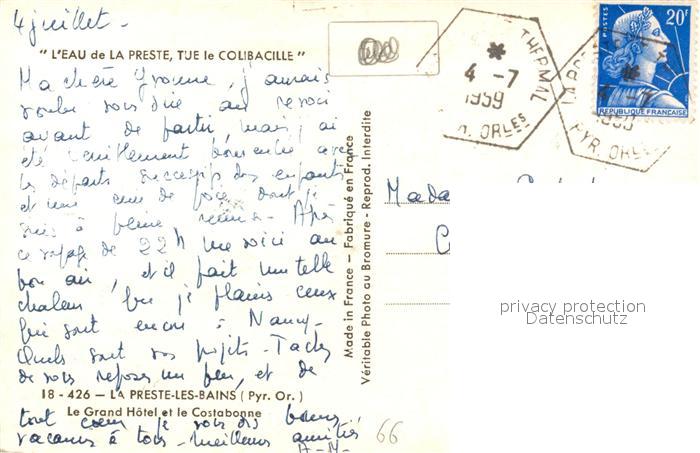 4 juillet -
" L'EAU de LA PRESTE, TUE le COLIBACILLE "
Ma chère Yvonne, j'aurais
voulu vous dire au revoir
avant de partir, mais j'ai
été tellement bousculée avec
les départs successifs des enfants
et une crise de foie dont je
suis à peine remise - Après
ce voyage de 22 h me voici au
bon air, et il fait une telle
chaleur que je plains ceux
qui sont encore à Nancy -
Quels sont vos projets - Tachez
de vous reposer un peu, et de
18 - 426 — LA PRESTE-LES-BAINS ( Pyr. Or. )
Le Grand Hôtel et le Costabonne
tout cœur je vous dis bonnes
vacances à tous - meilleures amitiés
A-M-
66
Made in France — Fabriqué en France
Véritable Photo au Bromure - Reprod. Interdite
THERMAL
4 -7
1959
R. ORLEs
LA PRESTE
1959
PYR. ORLEs
POSTES
20F
REPUBLIQUE FRANÇAISE
Mada
C
privacy protection
Datenschutz